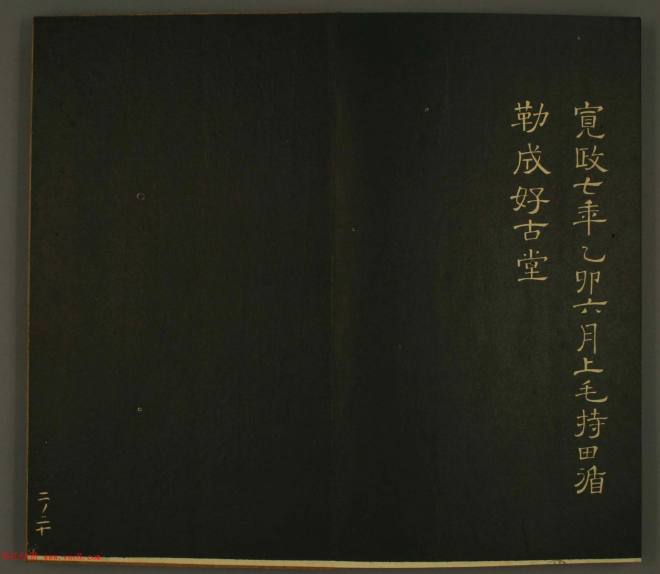 寛政七年乙卯六月上毛持田循
勒成好古堂
二ノ二十